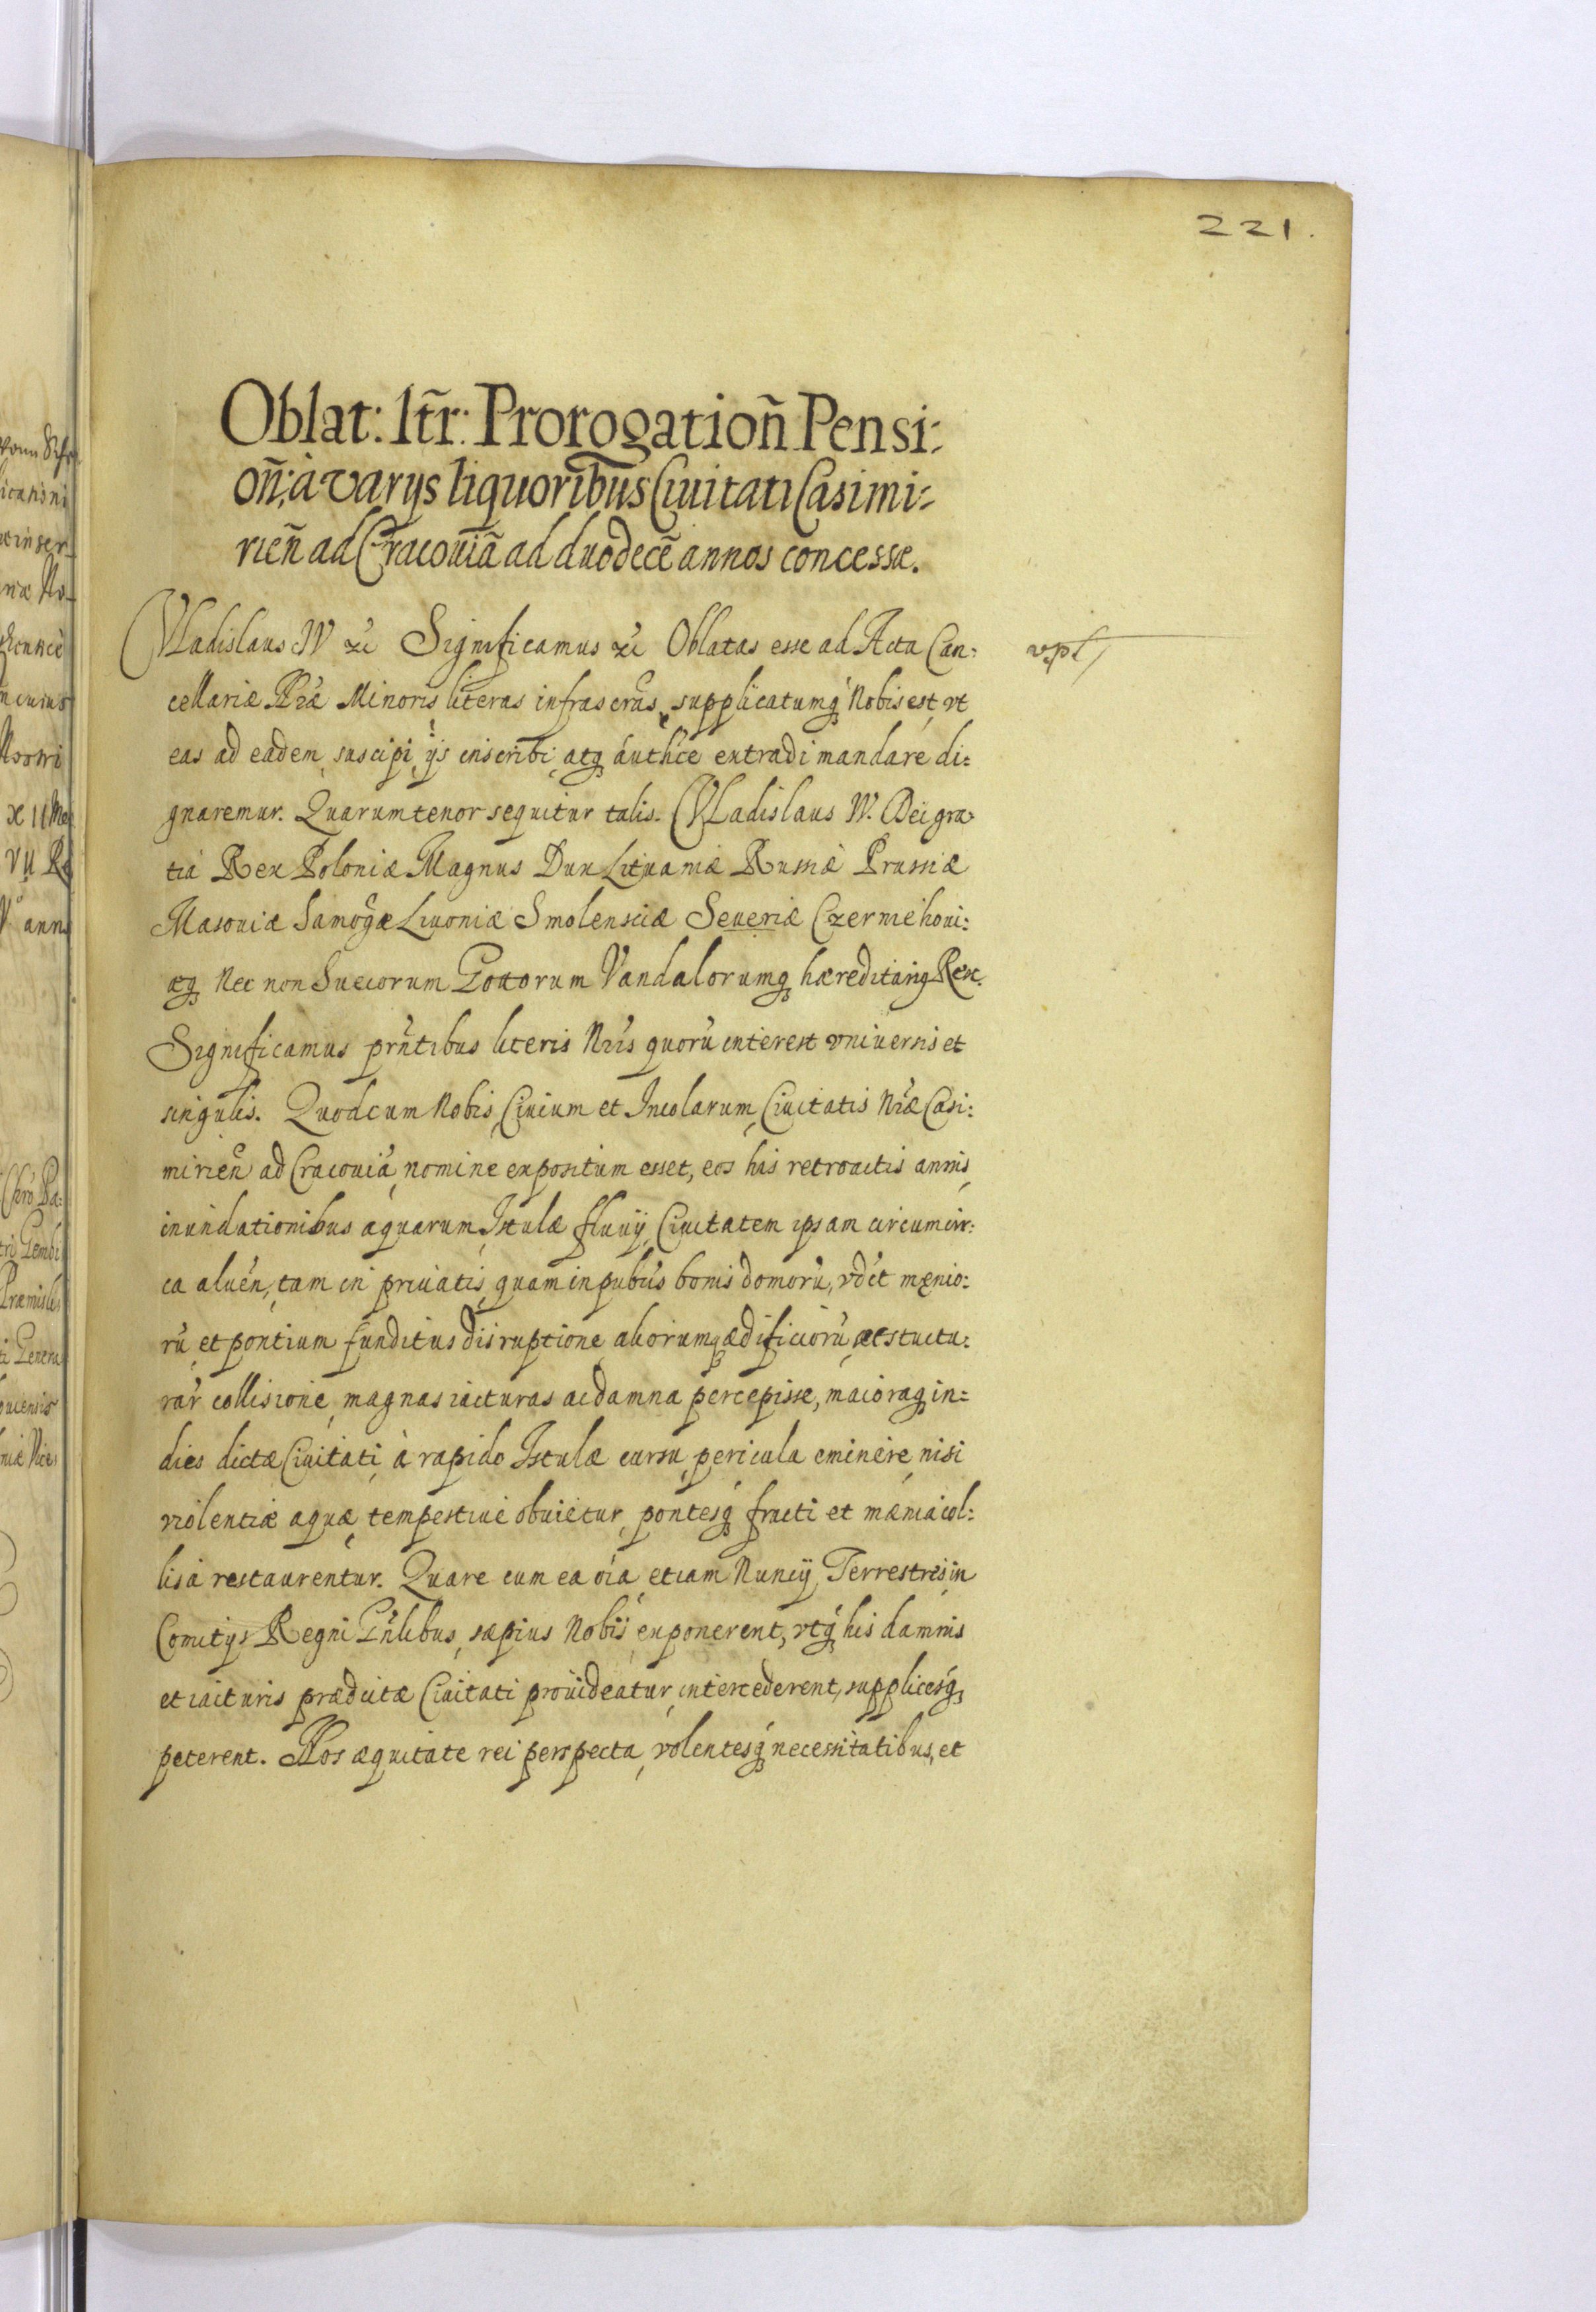 221.
Oblat: ltr̃: Prorogatioñ Pensi:
oñ: à varijs liquoribus Ciuitati Casimi:
rień ad Cracouiã ad duodecẽ annos concessæ.
Vladislaus IV &c Significamus &c Oblatas esse ad Acta Can:
cellariæ Nr̃æ Minoris literas infrascrũs, supplicatumq́ Nobis est, vt
eas ad eadem, suscipi, ijs inscribi, atq́ auth́ce extradi mandare di:
gnaremur. Quarum tenor sequitur talis. Vladislaus IV. Dei gra:
tia Rex Poloniæ Magnus Dux Lituaniæ Russiæ Prussiæ
Masouiæ Samogæ Liuoniæ Smolensciæ Seueriæ Czerniehoui:
æq́ Nec non Suecorum Gottorum Vandalorumq́ hæreditariq Rex.
Significamus prñtibus literis Nr̃is quorũ interest vniuersis et
singulis. Quod cum Nobis, Ciuium et Incolarum, Ciuitatis Nr̃æ Casi:
mirieñ ad Cracouiã, nomine expositum esset, eos his retroactis annis,
inundationibus aquarum, Istulæ fluuij, Ciuitatem ipsam circumcir:
ca alueń, tam in priuatis, quam in pub́cis bonis domorũ, vd́et mænio:
rũ, et pontium funditus disruptione aliorumq́ ædificiorũ, et stuctu:
rar̃ collisione, magnas iacturas ac damna percepisse, maioraq́ in:
dies dictæ Ciuitati, à rapido Istulæ cursu, pericula eminere, nisi
violentiæ aquæ, tempestiuè obuietur, pontesq́ fracti et mænia col:
lisa restaurentur. Quare cum ea oĩa, etiam Nuncij Terrestres in
Comitijs Regni Gñlibus, sæpius Nobis exponerent, vtq́ his damnis
et iacturis prædictæ Ciuitati prouideatur, intercederent, supplicesq́
peterent. Nos æquitate rei perspecta, volentesq́ necessitatibus, et